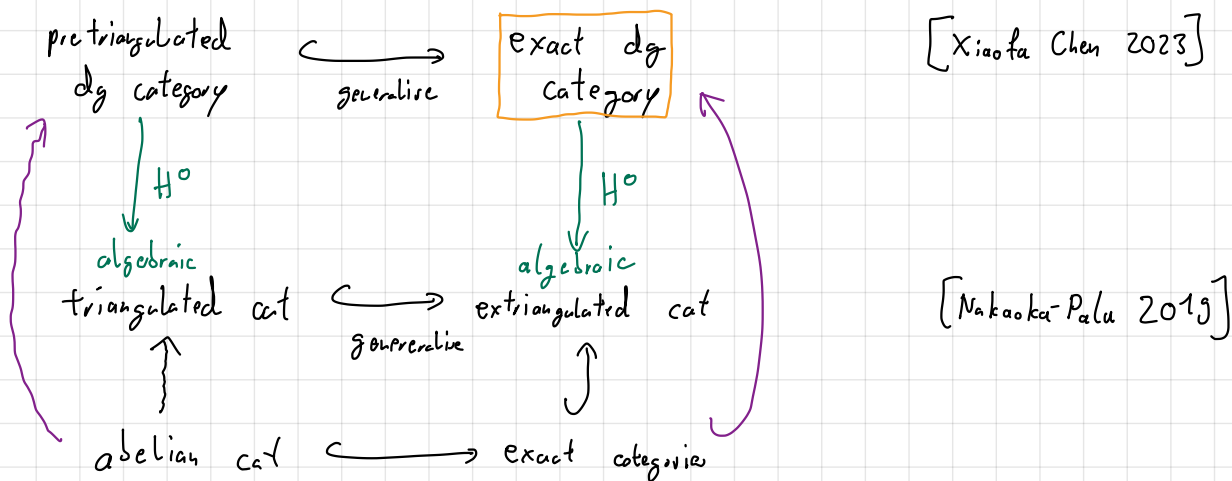 pretriangulated
dg category
generalise
exact dg
category
[Xiaofa Chen 2023]
H⁰
H⁰
algebraic
triangulated cat
generalise
algebraic
extriangulated cat
[Nakaoka-Palu 2019]
abelian cat
exact categories